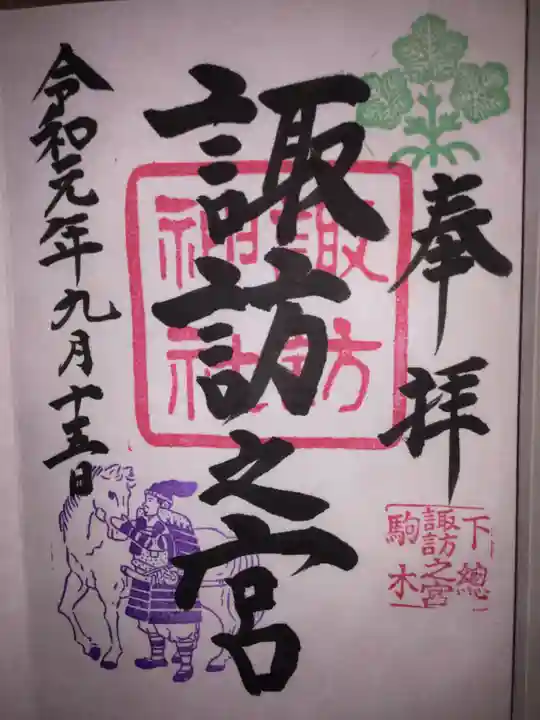 奉拝
下總
諏訪之宮
駒木
諏訪之宮
諏訪
神社
令和元年九月十五日